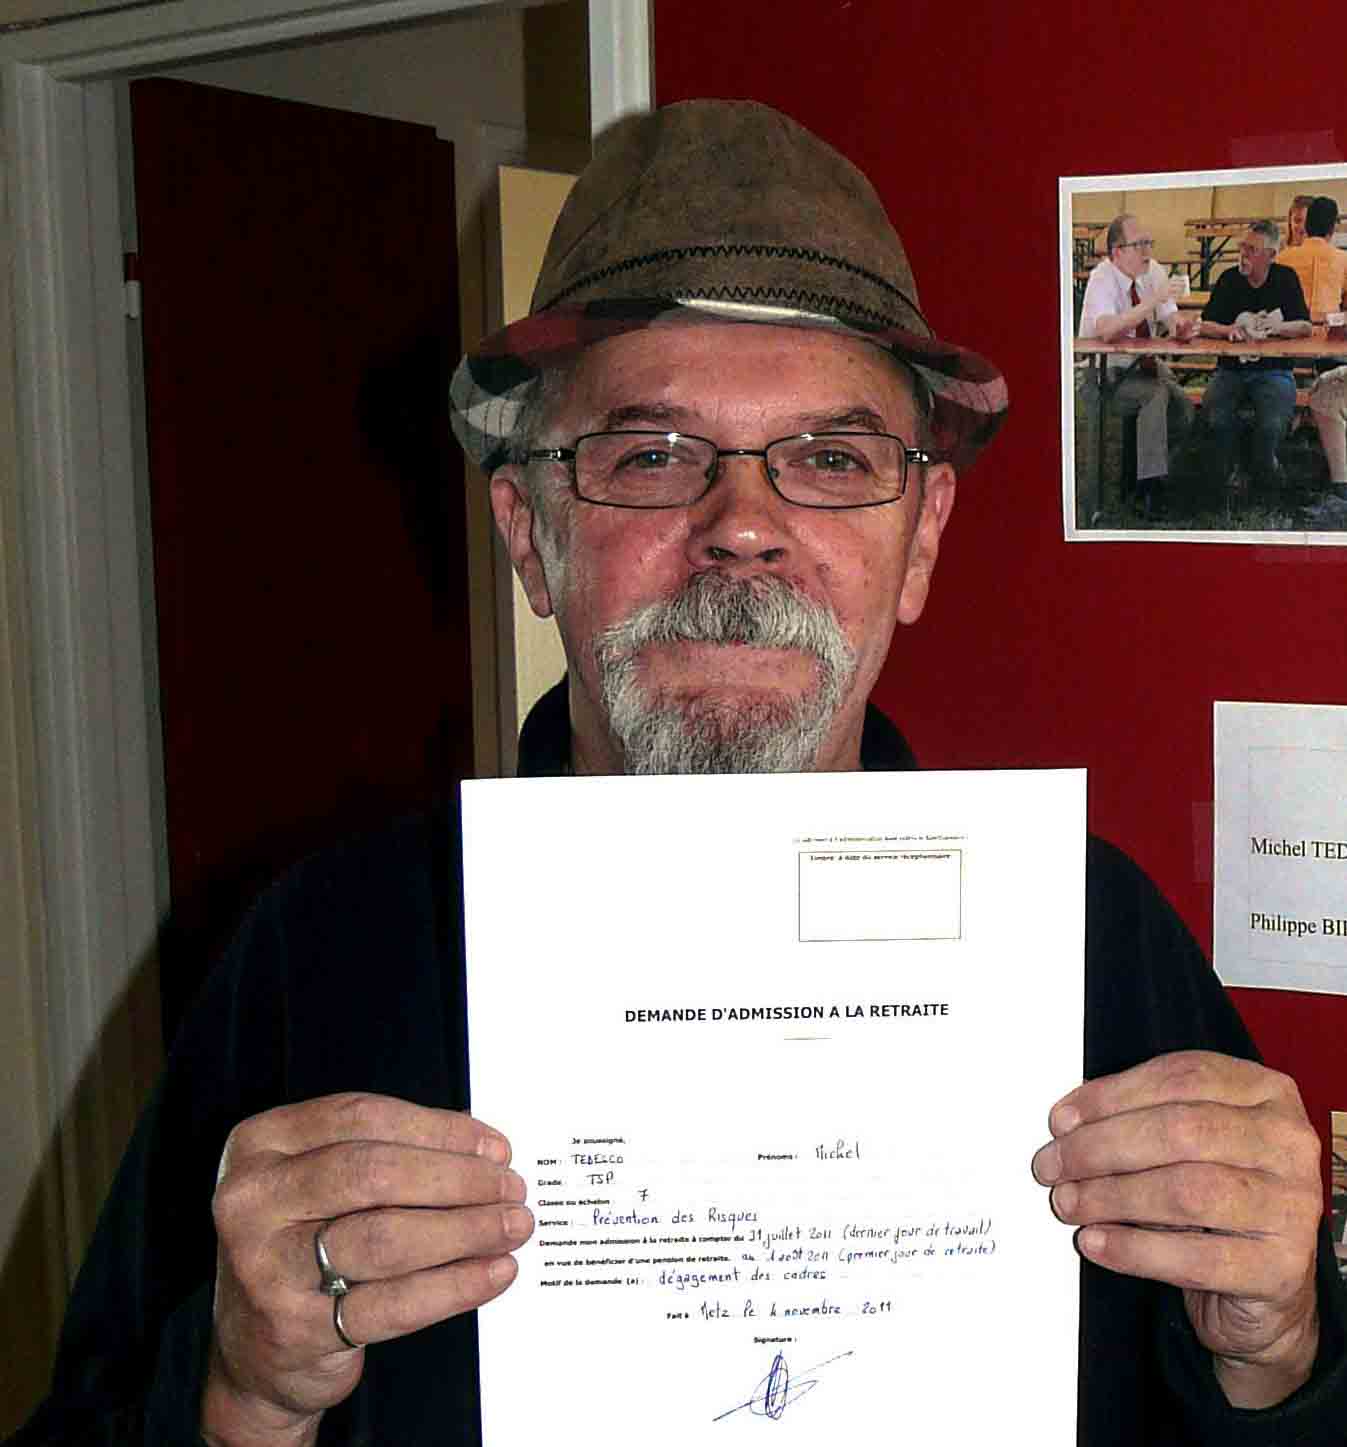 Timbre à date du service réceptionnaire
DEMANDE D'ADMISSION A LA RETRAITE
Je soussigné,
NOM : TEDESCO Prénoms : Michel
Grade TSP
Classe ou échelon : 7
Service : Prévention des Risques
Demande mon admission à la retraite à compter du 31 juillet 2011 (dernier jour de travail)
en vue de bénéficier d'une pension de retraite. au 1 août 2011 (premier jour de retraite)
Motif de la demande (a) : dégagement des cadres
Fait à Metz le 4 novembre 2011
Signature :
Michel TED
Philippe BI